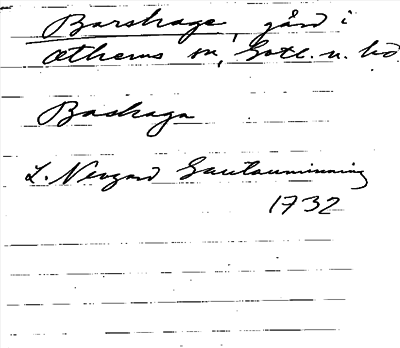 Barshage, gård i
Othems sn, Gotl. n. hd
Baskaga
L. Nevgard Gautauminning
1732